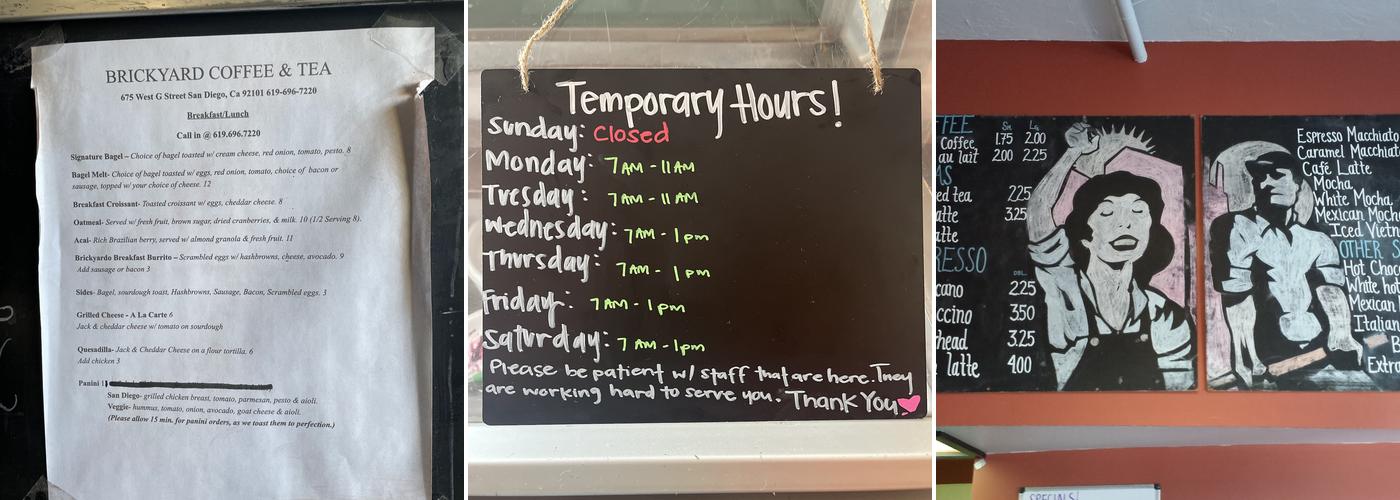 BRICKYARD COFFEE & TEA
675 West G Street San Diego, Ca 92101 619-696-7220
Breakfast/Lunch
Call in @ 619.696.7220
Signature Bagel – Choice of bagel toasted w/ cream cheese, red onion, tomato, pesto. 8
Bagel Melt- Choice of bagel toasted w/ eggs, red onion, tomato, choice of bacon or
sausage, topped w/ your choice of cheese. 12
Breakfast Croissant- Toasted croissant w/ eggs, cheddar cheese. 8
Oatmeal- Served w/ fresh fruit, brown sugar, dried cranberries, & milk. 10 (1/2 Serving 8).
Acai- Rich Brazilian berry, served w/ almond granola & fresh fruit. 11
Brickyardo Breakfast Burrito – Scrambled eggs w/ hashbrowns, cheese, avocado. 9
Add sausage or bacon 3
Sides- Bagel, sourdough toast, Hashbrowns, Sausage, Bacon, Scrambled eggs. 3
Grilled Cheese - A La Carte 6
Jack & cheddar cheese w/ tomato on sourdough
Quesadilla- Jack & Cheddar Cheese on a flour tortilla. 6
Add chicken 3
Panini
San Diego- grilled chicken breast, tomato, parmesan, pesto & aioli.
Veggie- hummus, tomato, onion, avocado, goat cheese & aioli.
(Please allow 15 min. for panini orders, as we toast them to perfection.)
Temporary Hours!
Sunday: Closed
Monday: 7AM - 11AM
Tuesday: 7AM - 11AM
Wednesday: 7AM - 1pm
Thursday: 7AM - 1pm
Friday: 7AM - 1pm
Saturday: 7AM - 1pm
Please be patient w/ staff that are here. They
are working hard to serve you. Thank You
FFEE Sm Lg
Coffee 1.75 2.00
au lait 2.00 2.25
AS
ed tea 2.25
atte 3.25
atte
RESSO
DBL.
cano 2.25
ccino 3.50
head 3.25
latte 4.00
Espresso Macchiato
Caramel Macchiat
Café Latte
Mocha
White Mocha,
Mexican Moch
Iced Vietn
OTHER S
Hot Choc
White hot
Mexican
Italian
B
Extra
SPECIALS